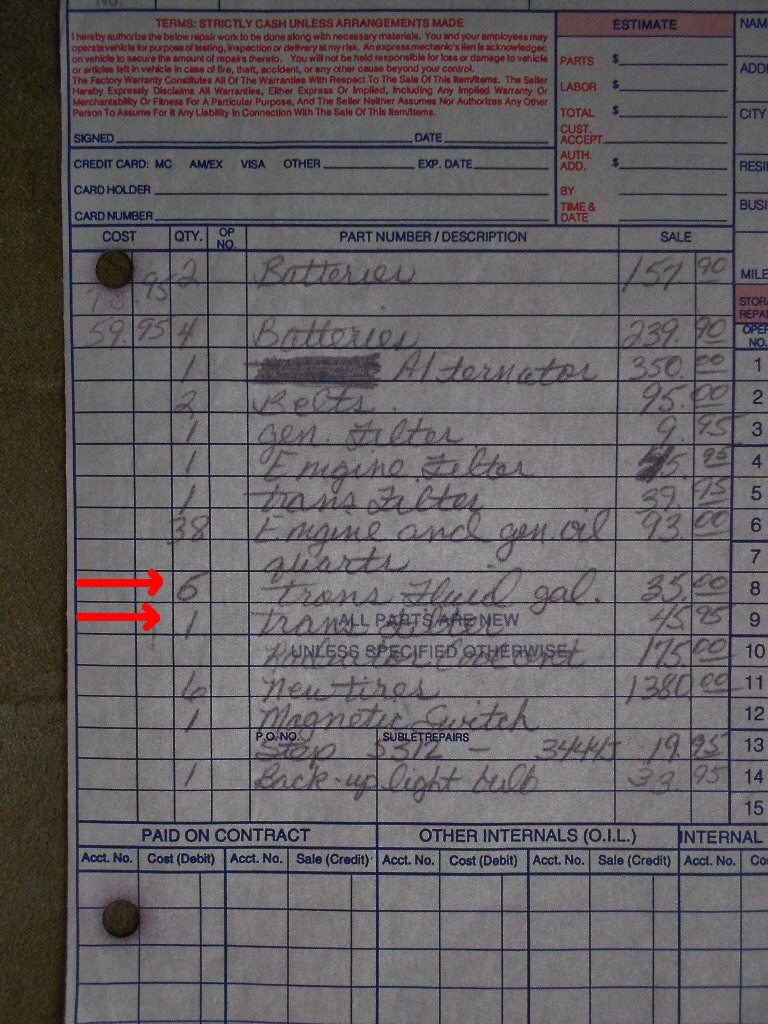 NO.
TERMS: STRICTLY CASH UNLESS ARRANGEMENTS MADE
I hereby authorize the below repair work to be done along with necessary materials. You and your employees may
operate vehicle for purpose of testing, inspection or delivery at my risk. An express mechanic's lien is acknowledged
on vehicle to secure the amount of repairs thereto. You will not be held responsible for loss or damage to vehicle
or articles left in vehicle in case of fire, theft, accident, or any other cause beyond your control.
The Factory Warranty Constitutes All Of The Warranties With Respect To The Sale Of This Item/Items. The Seller
Hereby Expressly Disclaims All Warranties, Either Express Or Implied, Including Any Implied Warranty Or
Merchantability Or Fitness For A Particular Purpose, And The Seller Neither Assumes Nor Authorizes Any Other
Person To Assume For It Any Liability In Connection With The Sale Of This Item/Items.
SIGNED DATE
CREDIT CARD: MC AM/EX VISA OTHER EXP. DATE
CARD HOLDER
CARD NUMBER
ESTIMATE
PARTS $
LABOR $
TOTAL $
CUST. ACCEPT.
AUTH. ADD. $
BY
TIME & DATE
NAM
ADD
CITY
RESI
BUSI
MILE
STOR
REPA
OPE
NO.
COST QTY. OP NO. PART NUMBER / DESCRIPTION SALE
78.95 2 Batteries 157 90
59.95 4 Batteries 239 90
1 Alternator 350.00 1
2 Belts. 95.00 2
1 gen. Filter 9.95 3
1 Emgine Filter 5 95 4
1 trans Filter 39 95 5
38 Emgine and gen. oil 93.00 6
quarts 7
6 trans Fluid gal. 35.00 8
1 trans 45 95 9
ALL PARTS ARE NEW
175.00 10
UNLESS SPECIFIED OTHERWISE
6 New tires 1380.00 11
1 Magnetic Switch 12
P.O. NO. SUBLET REPAIRS
Stop 5312 - 34445 19.95 13
1 Back-up light bulb 33 95 14
15
PAID ON CONTRACT OTHER INTERNALS (O.I.L.) INTERNAL
Acct. No. Cost (Debit) Acct. No. Sale (Credit) Acct. No. Cost (Debit) Acct. No. Sale (Credit) Acct. No. Co